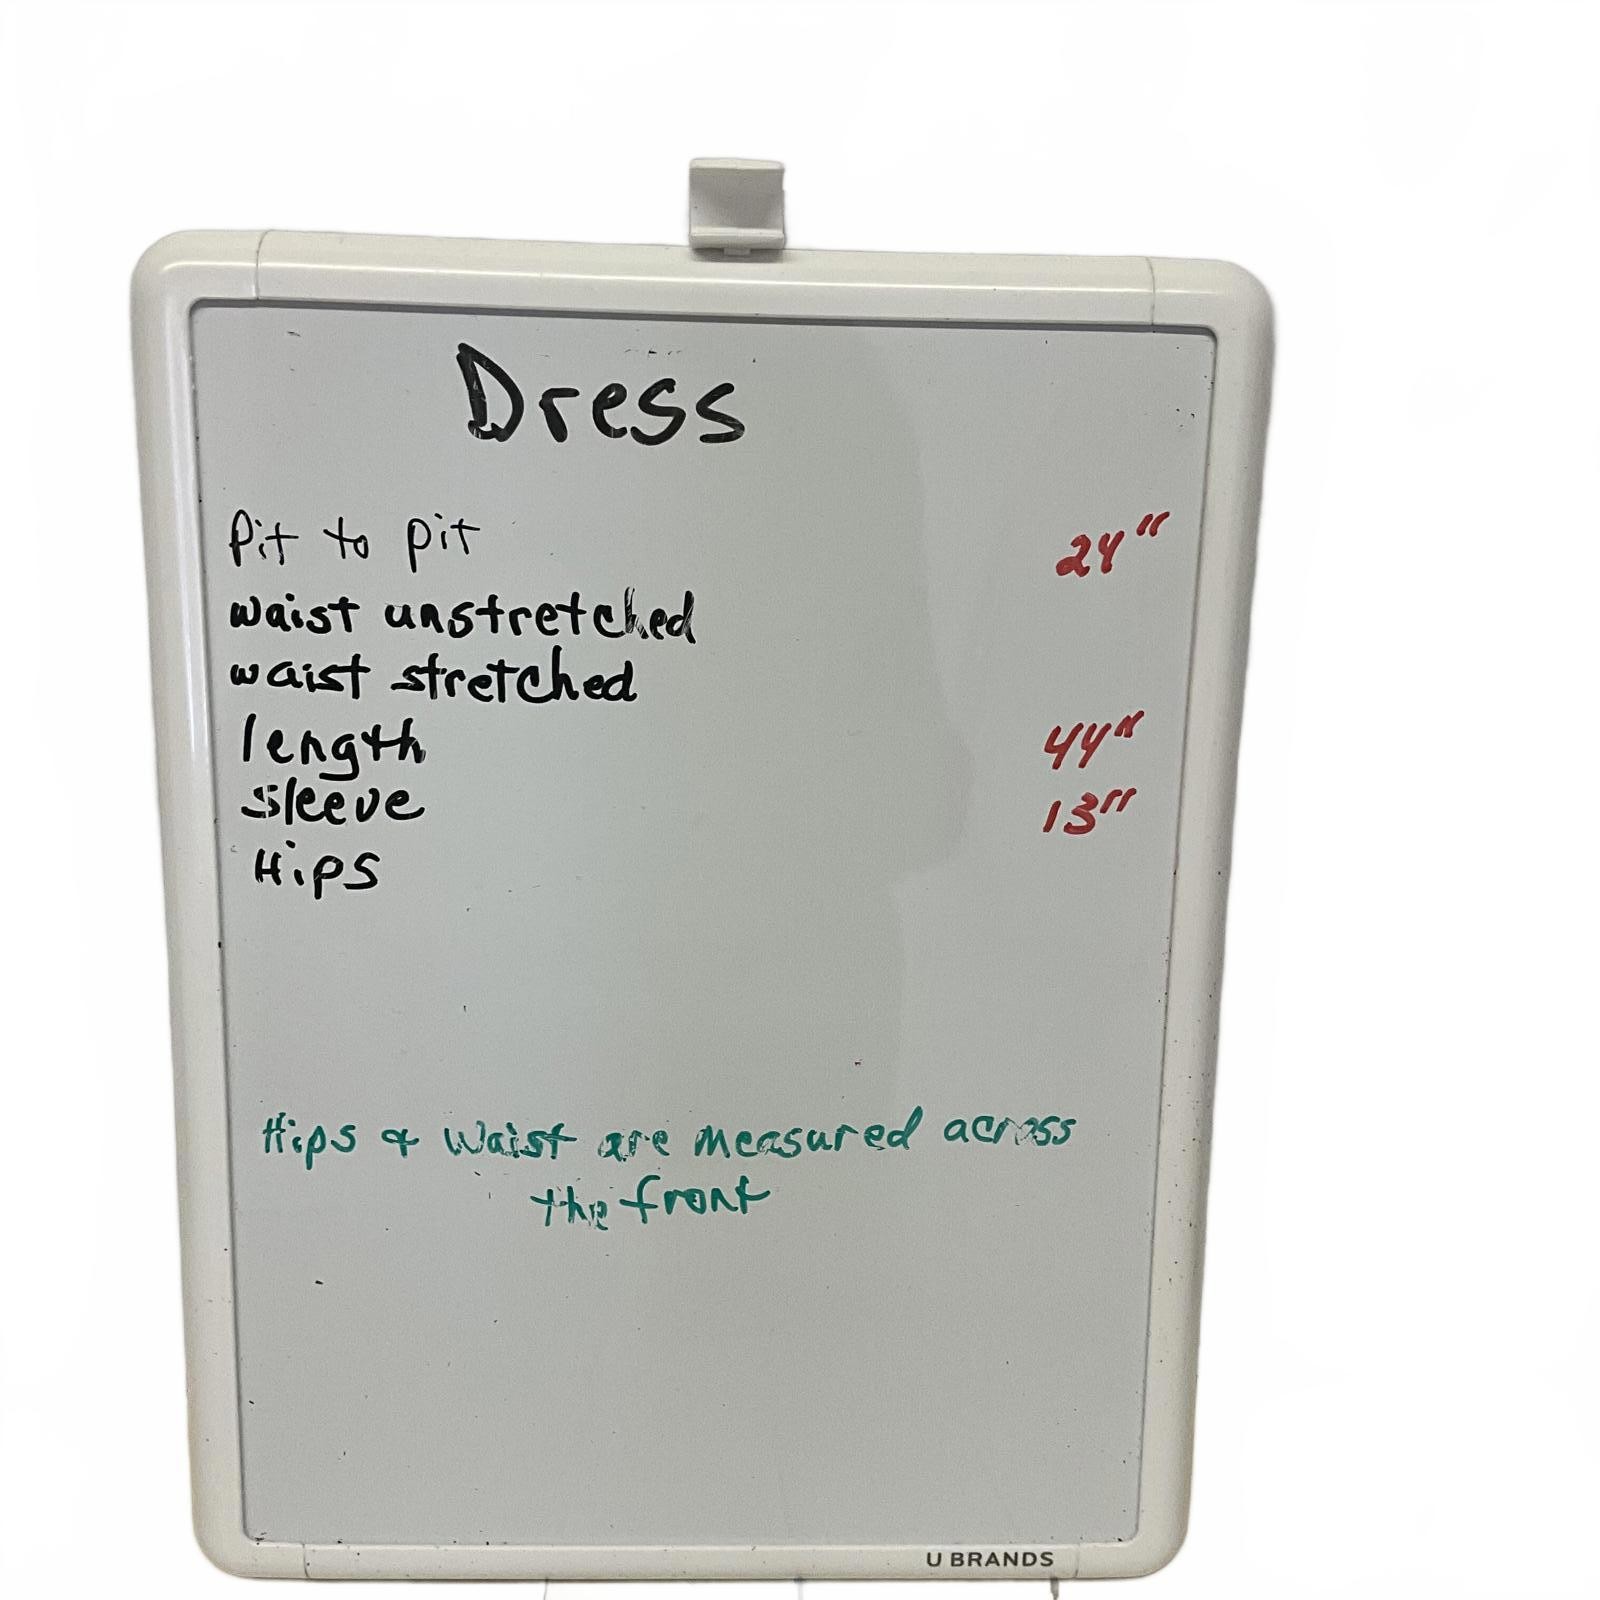 Dress
Pit to pit 24"
waist unstretched
waist stretched
length 44"
sleeve 13"
Hips
Hips & Waist are measured across
the front
U BRANDS